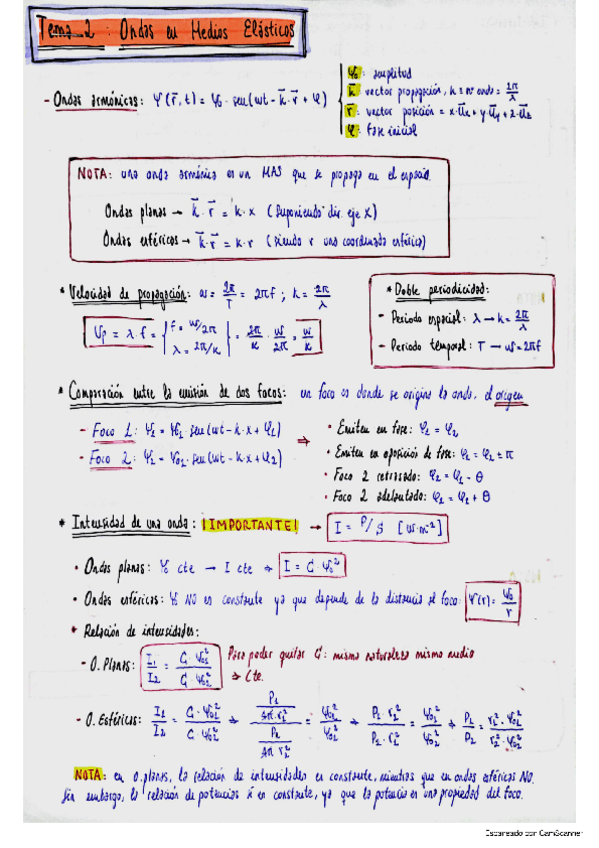 Tema 2 : Ondas en Medios Elásticos
- Ondas armónicas: Ψ(r⃗,t) = Ψ₀ · sen(ωt - k⃗·r⃗ + φ)
Ψ₀: amplitud
k⃗ vector propagación, k = nº onda = 2π/λ
r⃗: vector posición = x·u⃗x + y·u⃗y + z·u⃗z
φ: fase inicial
NOTA: una onda armónica es un MAS que se propaga en el espacio.
Ondas planas → k⃗·r⃗ = k·x (Suponiendo dir. eje X)
Ondas esféricas → k⃗·r⃗ = k·r (siendo r una coordenada esférica)
* Velocidad de propagación: ω = 2π/T = 2πf ; k = 2π/λ
Vp = λ·f = { f = ω/2π
λ = 2π/k } = 2π/k · ω/2π = ω/k
* Doble periodicidad:
- Periodo espacial: λ → k = 2π/λ
- Periodo temporal: T → ω = 2πf
* Comparación entre la emisión de dos focos: un foco es donde se origina la onda, el origen
- Foco 1: Ψ₁ = Ψ₀₁ · sen(ωt - k·x + φ₁)
- Foco 2: Ψ₂ = Ψ₀₂ · sen(ωt - k·x + φ₂)
⇒
· Emiten en fase: φ₁ = φ₂
· Emiten en oposición de fase: φ₁ = φ₂ ± π
· Foco 2 retrasado: φ₂ = φ₁ - θ
· Foco 2 adelantado: φ₂ = φ₁ + θ
* Intensidad de una onda: ¡IMPORTANTE! → I = P/S [W·m⁻²]
· Ondas planas: Ψ₀ cte → I cte ⇒ I = C·Ψ₀²
· Ondas esféricas: Ψ₀ NO es constante ya que depende de la distancia al foco: Ψ(r) = Ψ₀/r
* Relación de intensidades:
- O. Planas: I₁/I₂ = C·Ψ₀₁²/C·Ψ₀₂²
Para poder quitar C: misma naturaleza mismo medio
⇒ Cte.
- O. Esféricas: I₁/I₂ = C·Ψ₀₁²/C·Ψ₀₂² ⇒ (P₁/4π·r₁²)/(P₂/4π·r₂²) = Ψ₀₁²/Ψ₀₂² ⇒ P₁·r₂²/P₂·r₁² = Ψ₀₁²/Ψ₀₂² ⇒ P₁/P₂ = r₁²·Ψ₀₁²/r₂²·Ψ₀₂²
NOTA: en O. planas, la relación de intensidades es constante, mientras que en ondas esféricas NO.
Sin embargo, la relación de potencias sí es constante, ya que la potencia es una propiedad del foco.
Escaneado con CamScanner